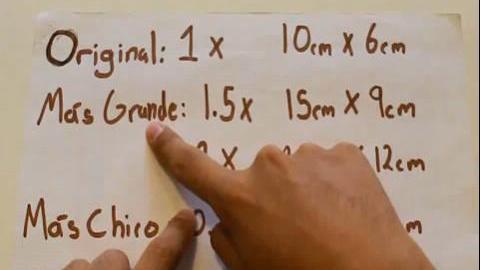 Original: 1x 10cm x 6cm
Más Grande: 1.5x 15cm x 9cm
x 12cm
Más Chico